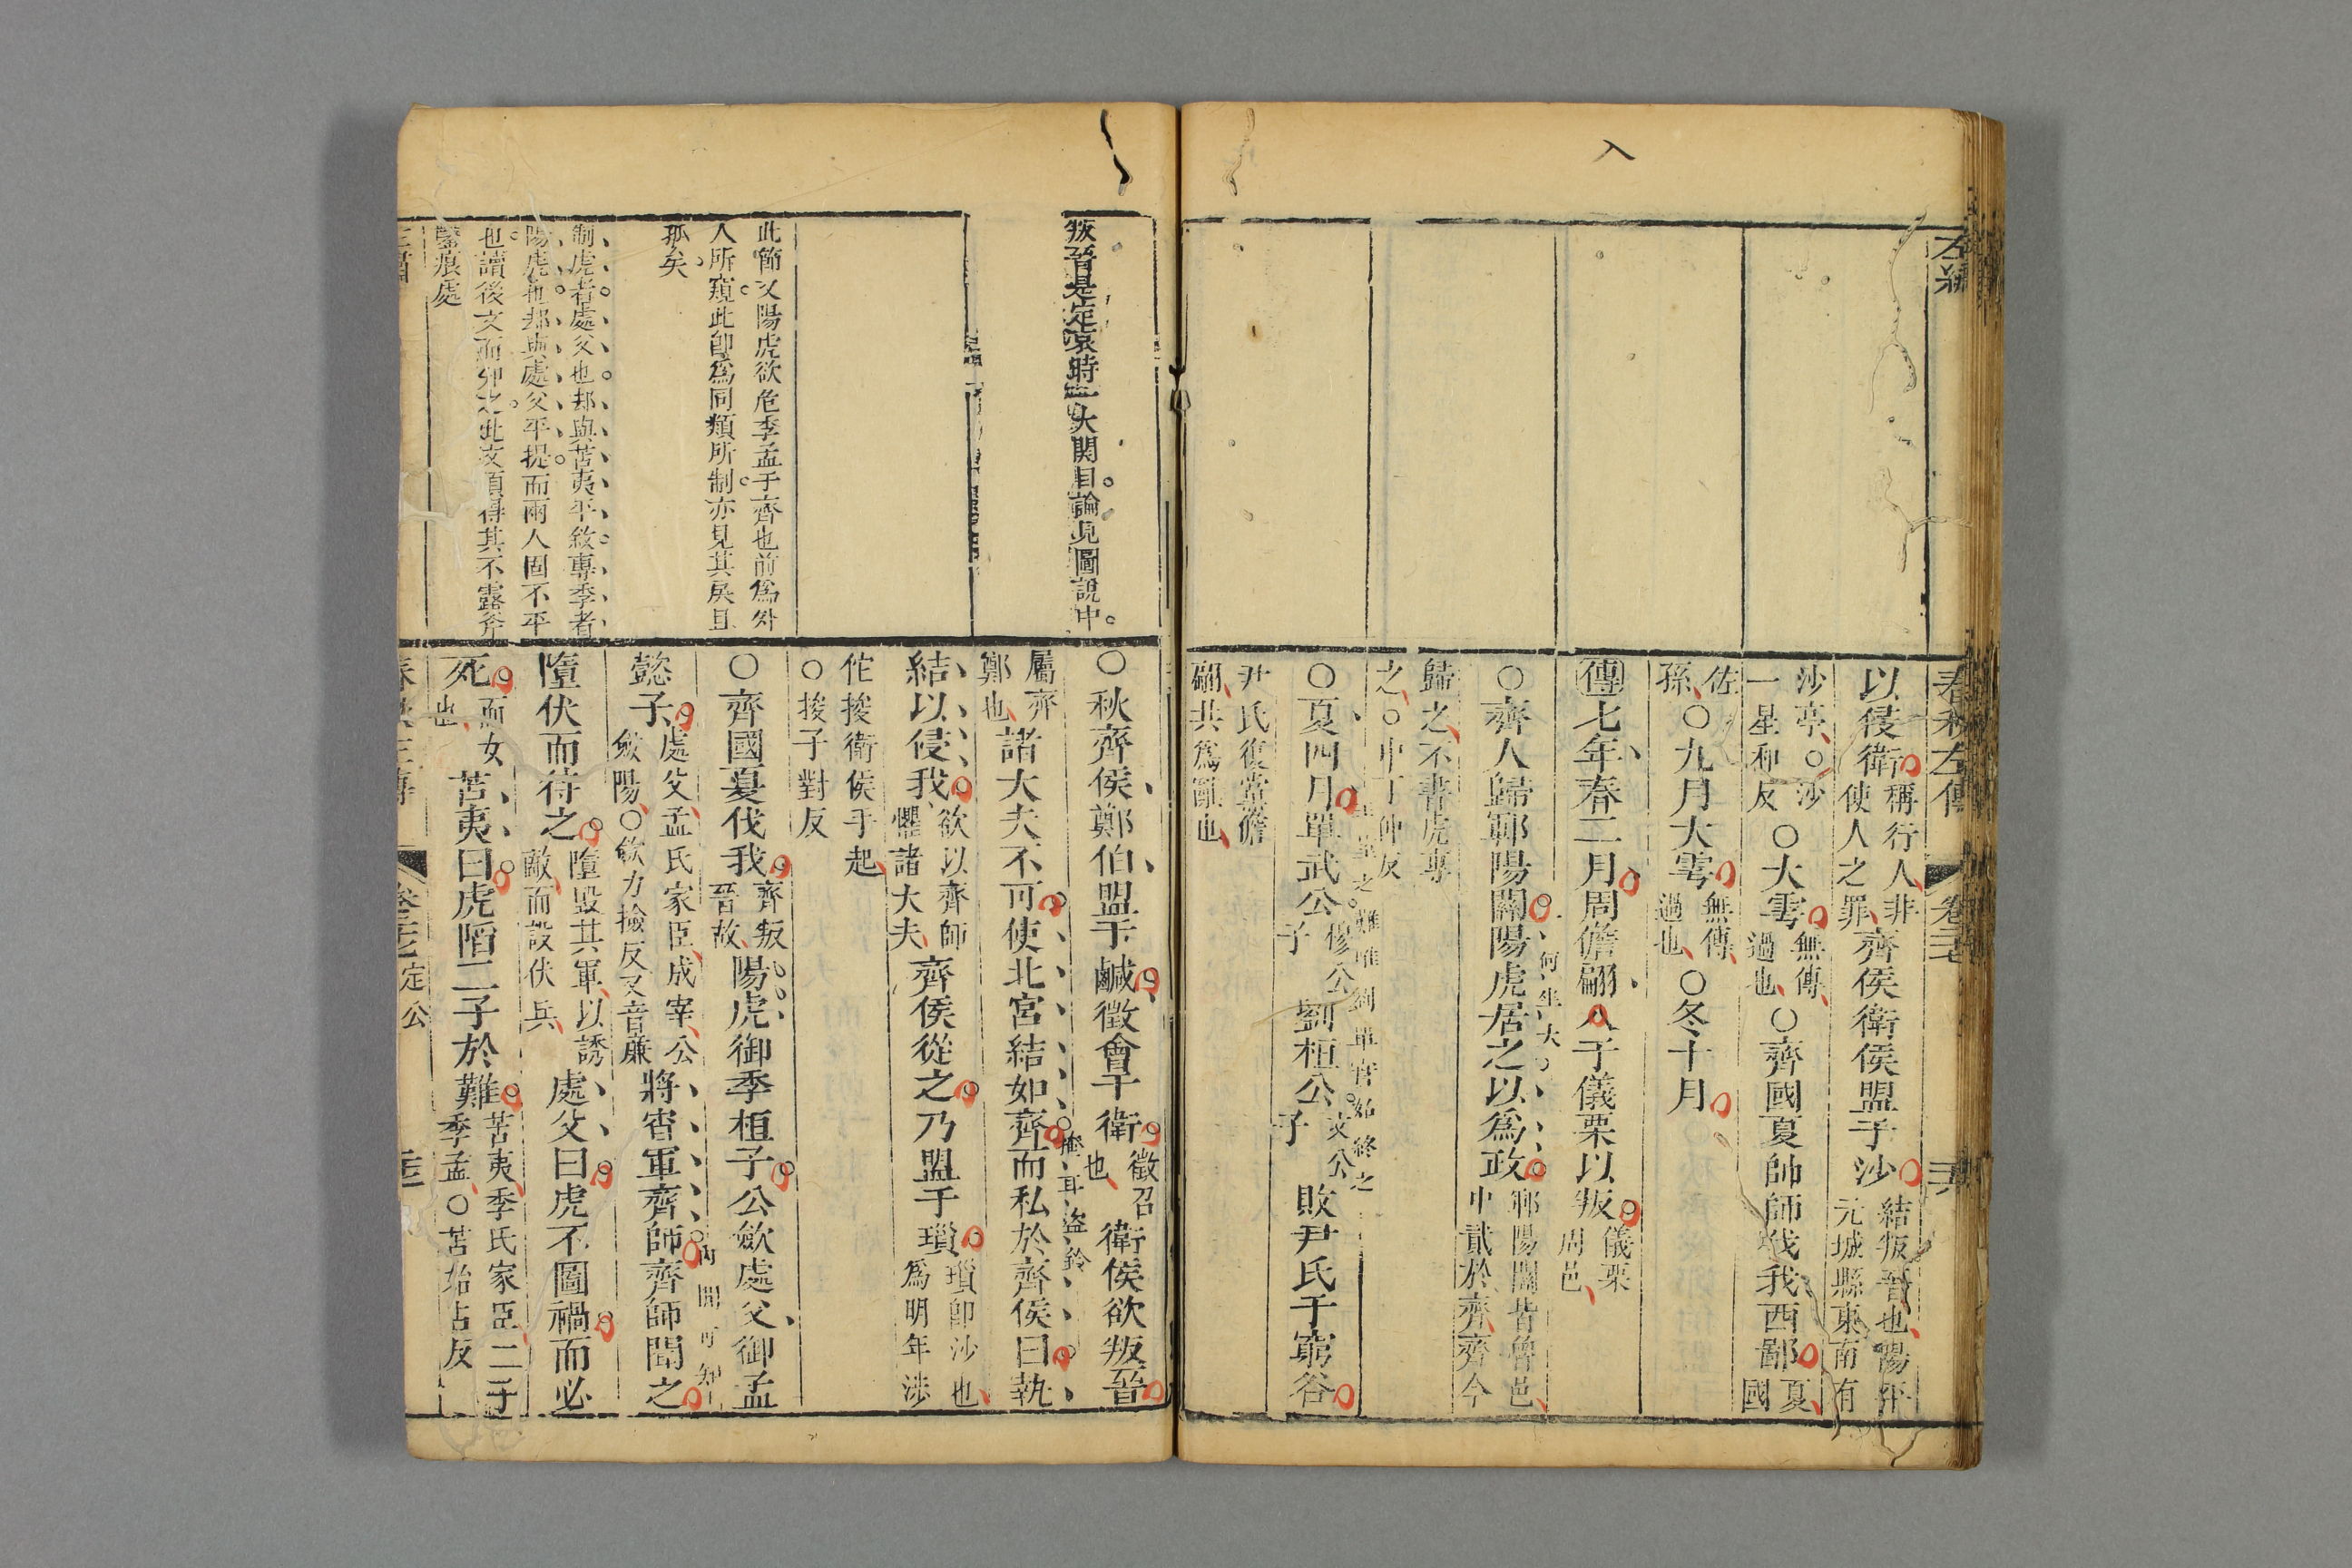 左繡
春秋左傳
卷二十七
以侵衛稱行人非使人之罪齊侯衛侯盟于沙結叛晉也陽平元城縣東南有
沙亭○沙一星和反○大雩無傳過也○齊國夏帥師伐我西鄙夏國
佐孫○九月大雩無傳過也○冬十月
傳七年春二月周儋翩入于儀栗以叛儀栗周邑
○齊人歸鄆陽關陽虎居之以爲政鄆陽關皆魯邑中貳於齊齊今
歸之不書虎專之○中丁仲反
○夏四月單武公穆公子劉桓公文公子敗尹氏于窮谷
尹氏復黨儋翩共爲亂也
叛晉是定哀時一大關目論見圖說中
○秋齊侯鄭伯盟于鹹徵會于衛徵召也衛侯欲叛晉
屬齊鄭也諸大夫不可使北宮結如齊而私於齊侯曰執
結以侵我欲以齊師懼諸大夫齊侯從之乃盟于瑣瑣卽沙也爲明年涉
佗捘衛侯手起○捘子對反
此節又陽虎欲危季孟于齊也前爲外
人所窺此卽爲同類所制亦見其戾且
孤矣
○齊國夏伐我齊叛晉故陽虎御季桓子公斂處父御孟
懿子處父孟氏家臣成宰公斂陽○斂力撿反又音廉將宵軍齊師齊師聞之
墮伏而待之墮毀其軍以誘敵而設伏兵處父曰虎不圖禍而必
死而女也苫夷曰虎陷二子於難苫夷季氏家臣二子季孟○苫始占反
制虎者處父也却與苫夷平敘專季者
陽虎也却與處父平提而兩人固不平
也讀後文而知之此文須得其不露斧
鑿痕處
定公